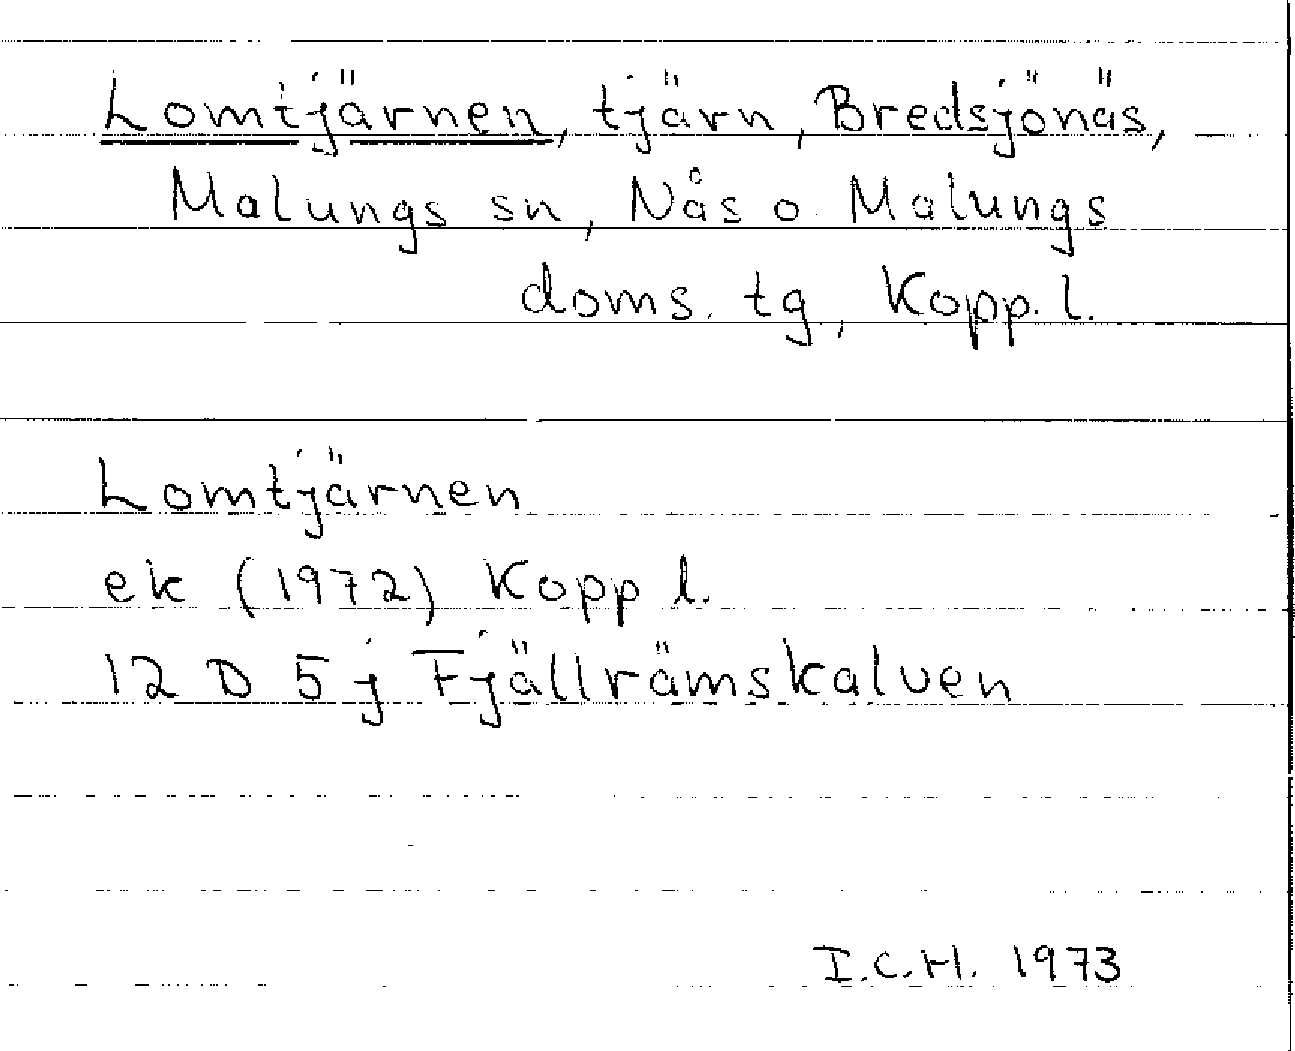 Lomtjärnen, tjärn, Bredsjönäs,
Malungs sn, Nås o Malungs
doms. tg, Kopp. l.
Lomtjärnen
ek (1972) Kopp l.
12 D 5 j Fjällrämskalven
I.C.H. 1973